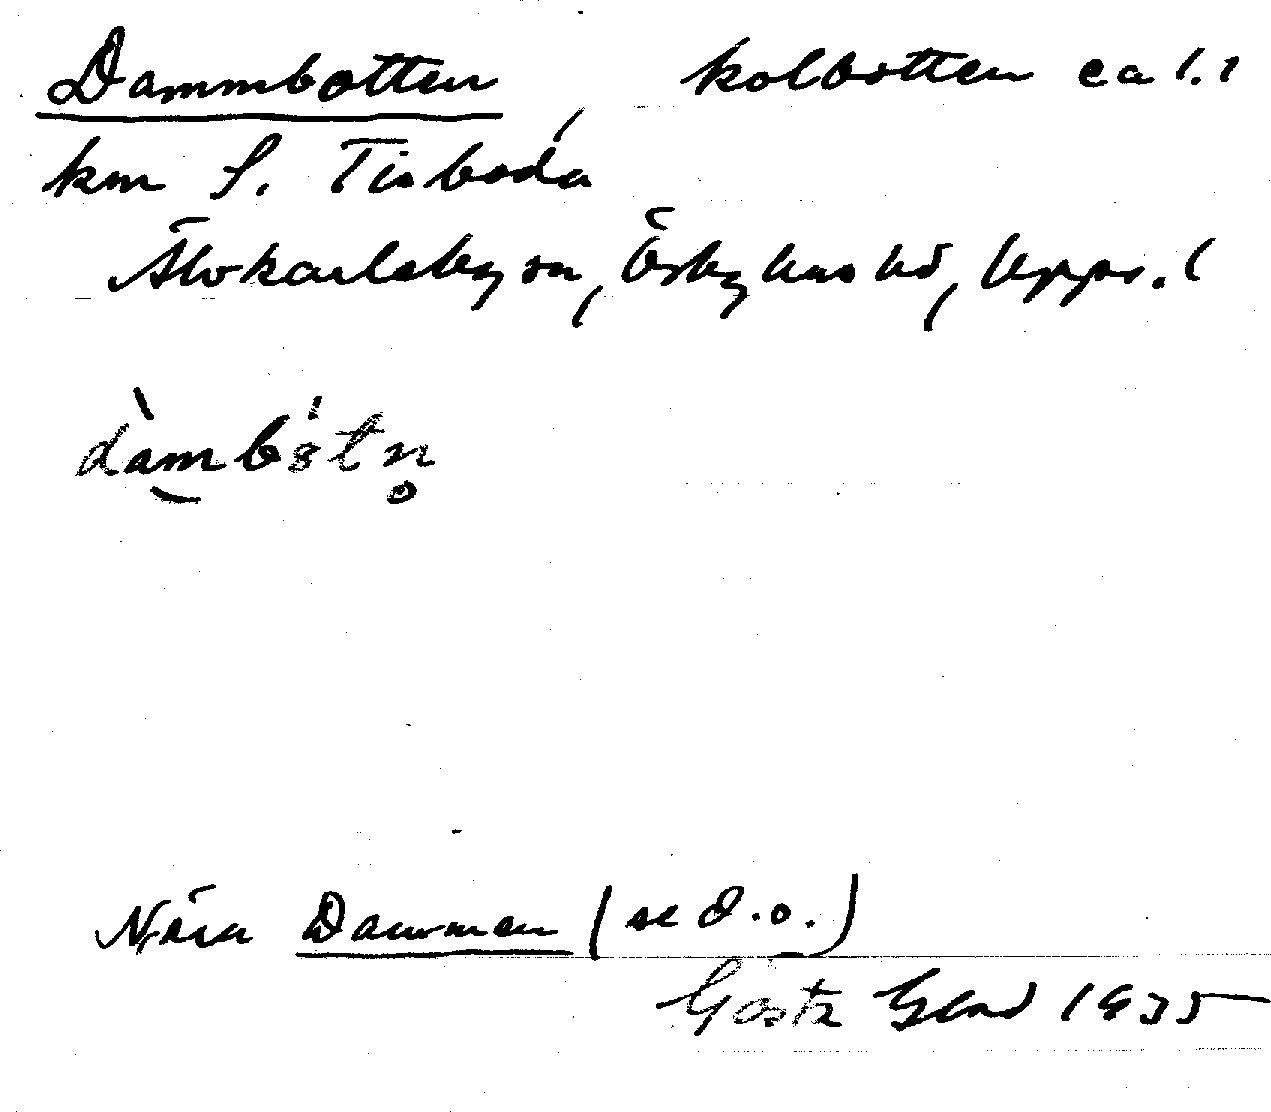 Dammbotten, kolbotten ca 1.1
km S. Tisboda
Älvkarleby sn, Örbyhus hd, Upps. l
dàmbótn̥
Nära Dammen (se d.o.)
Gösta 1935